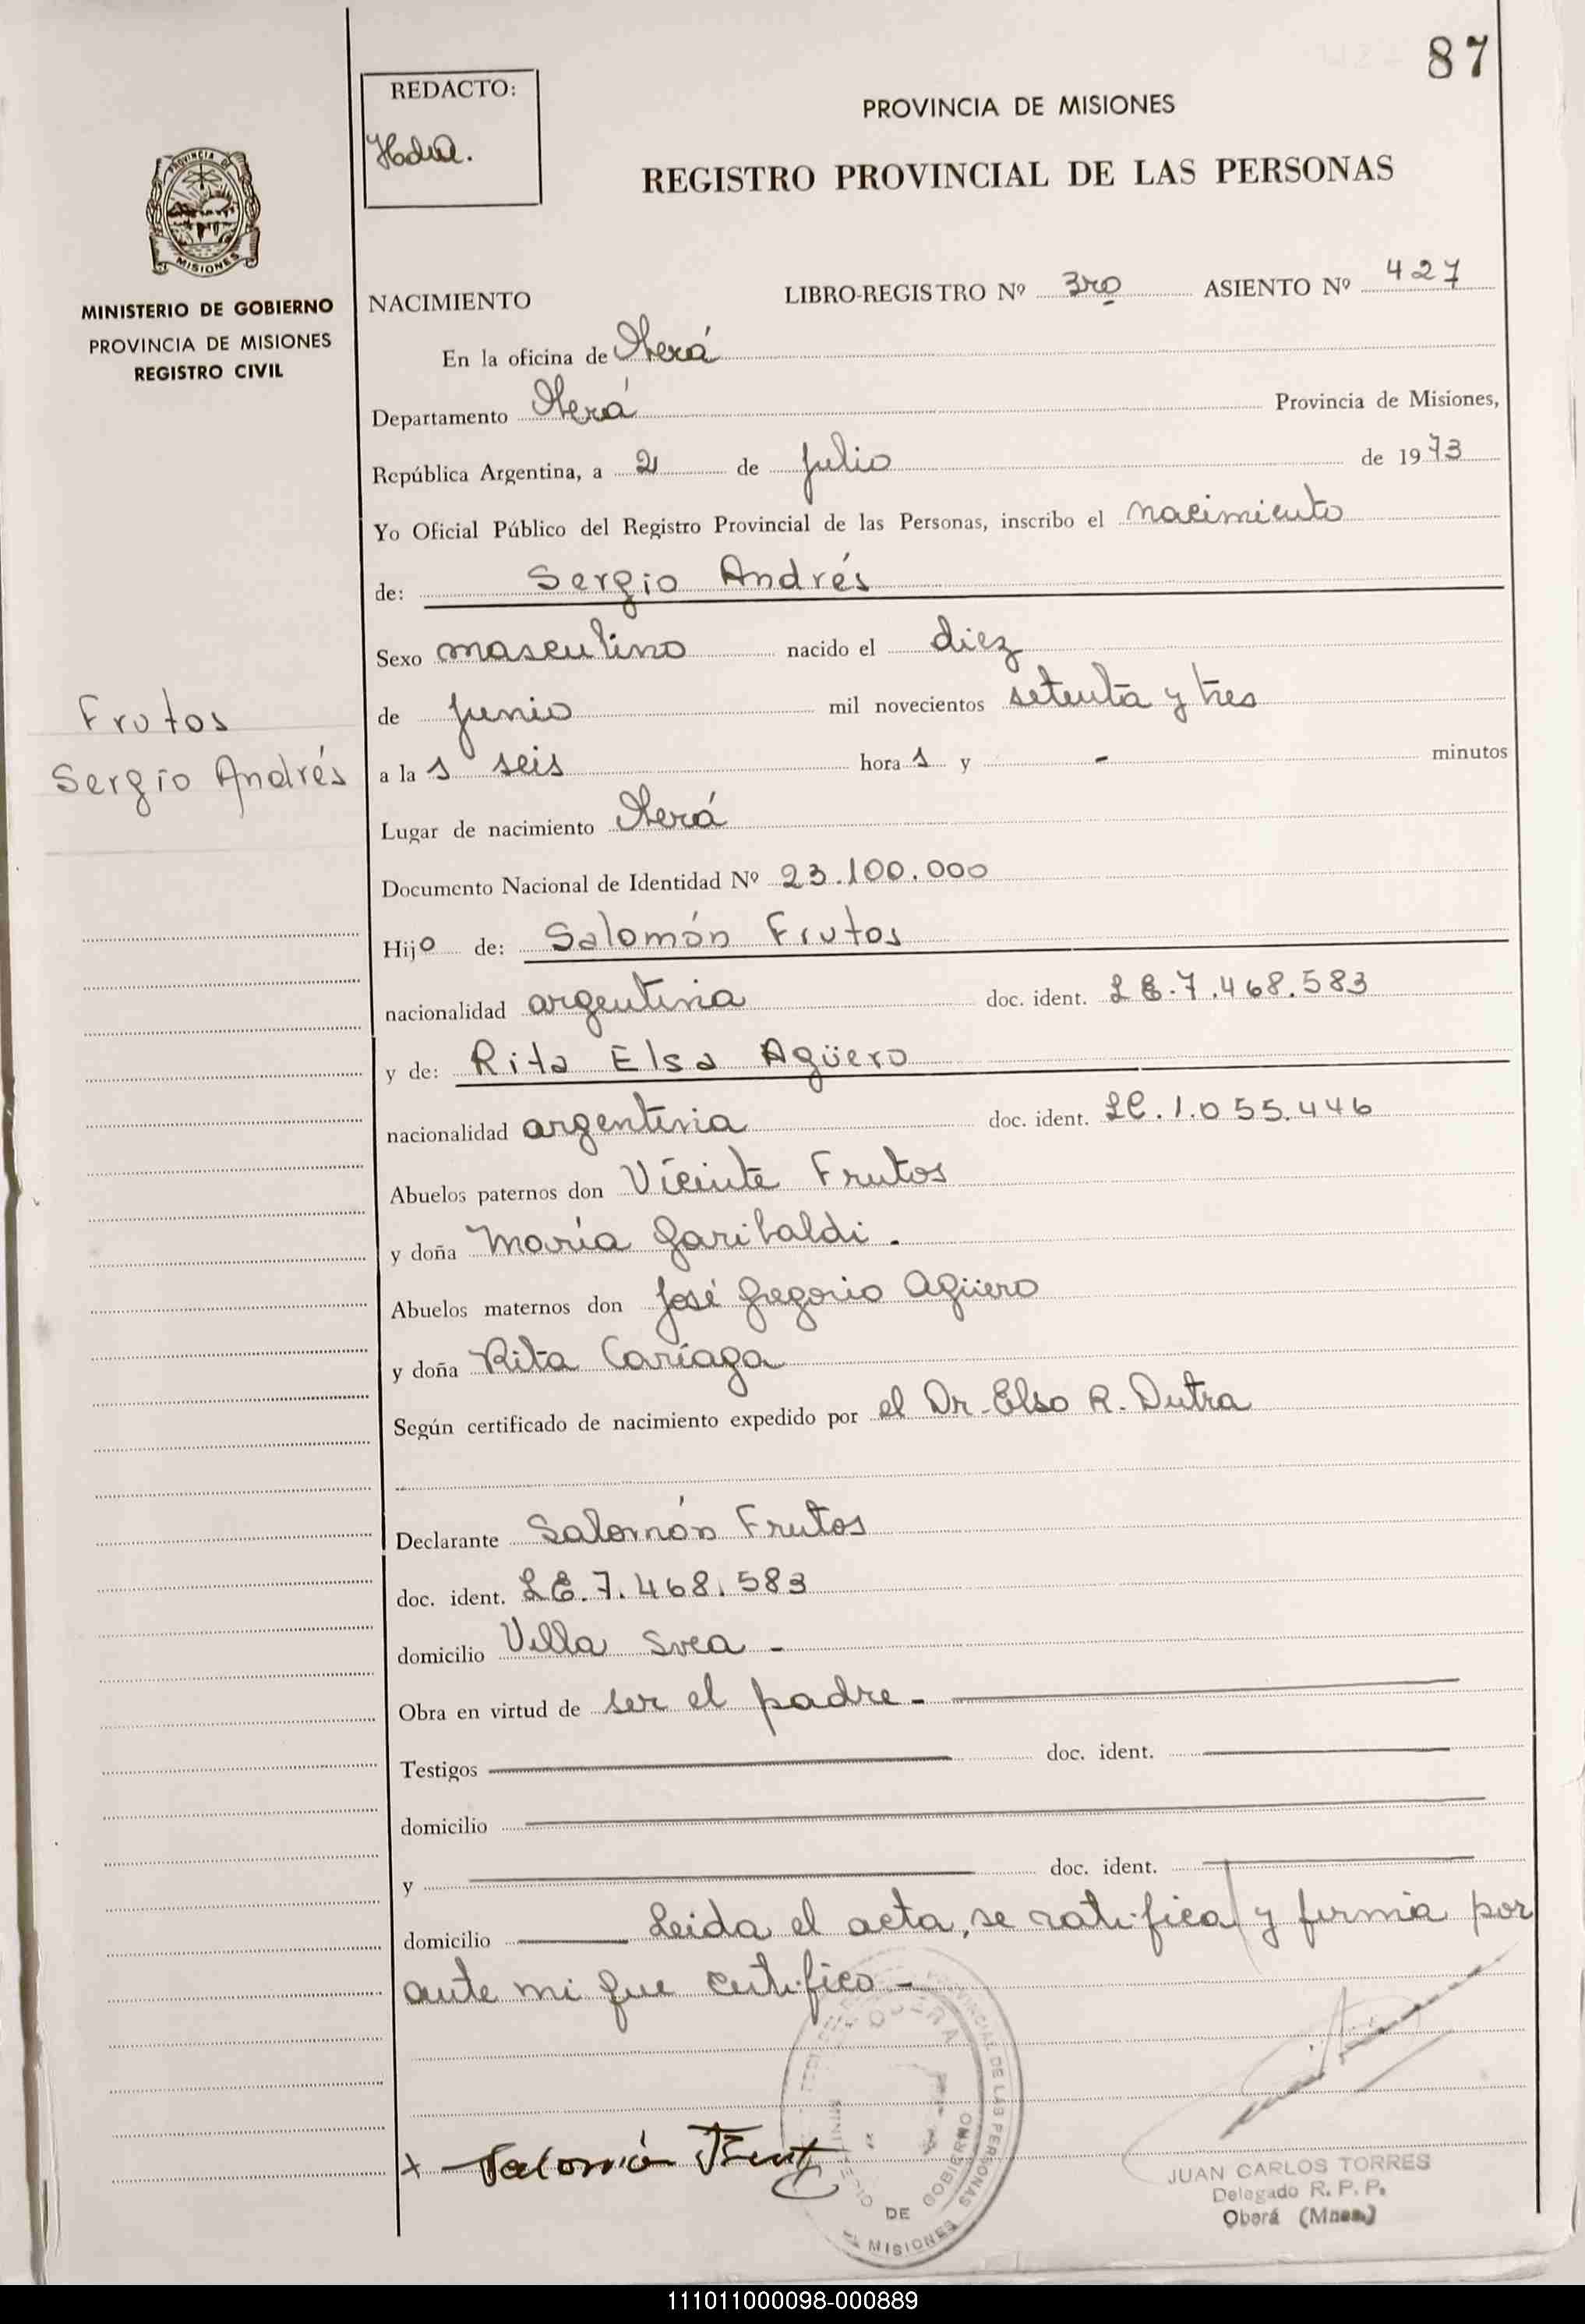 87
REDACTO:
PROVINCIA DE MISIONES
REGISTRO PROVINCIAL DE LAS PERSONAS
PROVINCIA DE
MISIONES
MINISTERIO DE GOBIERNO
PROVINCIA DE MISIONES
REGISTRO CIVIL
NACIMIENTO LIBRO-REGISTRO Nº 3ro ASIENTO Nº 427
En la oficina de Oberá
Departamento Oberá Provincia de Misiones,
República Argentina, a 2 de julio de 1973
Yo Oficial Público del Registro Provincial de las Personas, inscribo el nacimiento
de: Sergio Andrés
Sexo masculino nacido el diez
de junio mil novecientos setenta y tres
Frutos
Sergio Andrés
a la s seis hora s y - minutos
Lugar de nacimiento Oberá
Documento Nacional de Identidad Nº 23.100.000
Hijo de: Salomón Frutos
nacionalidad argentina doc. ident. LE.7.468.583
y de: Rita Elsa Agüero
nacionalidad argentina doc. ident. LC.1.055.446
Abuelos paternos don Vicente Frutos
y doña María Garibaldi.
Abuelos maternos don José Gregorio Agüero
y doña Rita Cariaga
Según certificado de nacimiento expedido por el Dr. Elso R. Dutra
Declarante Salomón Frutos
doc. ident. LE.7.468.583
domicilio Villa Svea -
Obra en virtud de ser el padre.-
Testigos doc. ident.
domicilio
y doc. ident.
domicilio Leida el acta, se ratifica y firma por
ante mi que certifico.-
OBERA
PROVINCIAL DE LAS PERSONAS
DE GOBIERNO
MISIONES
x Salomón Frut
JUAN CARLOS TORRES
Delegado R. P. P.
Oberá (Mnes.)
111011000098-000889